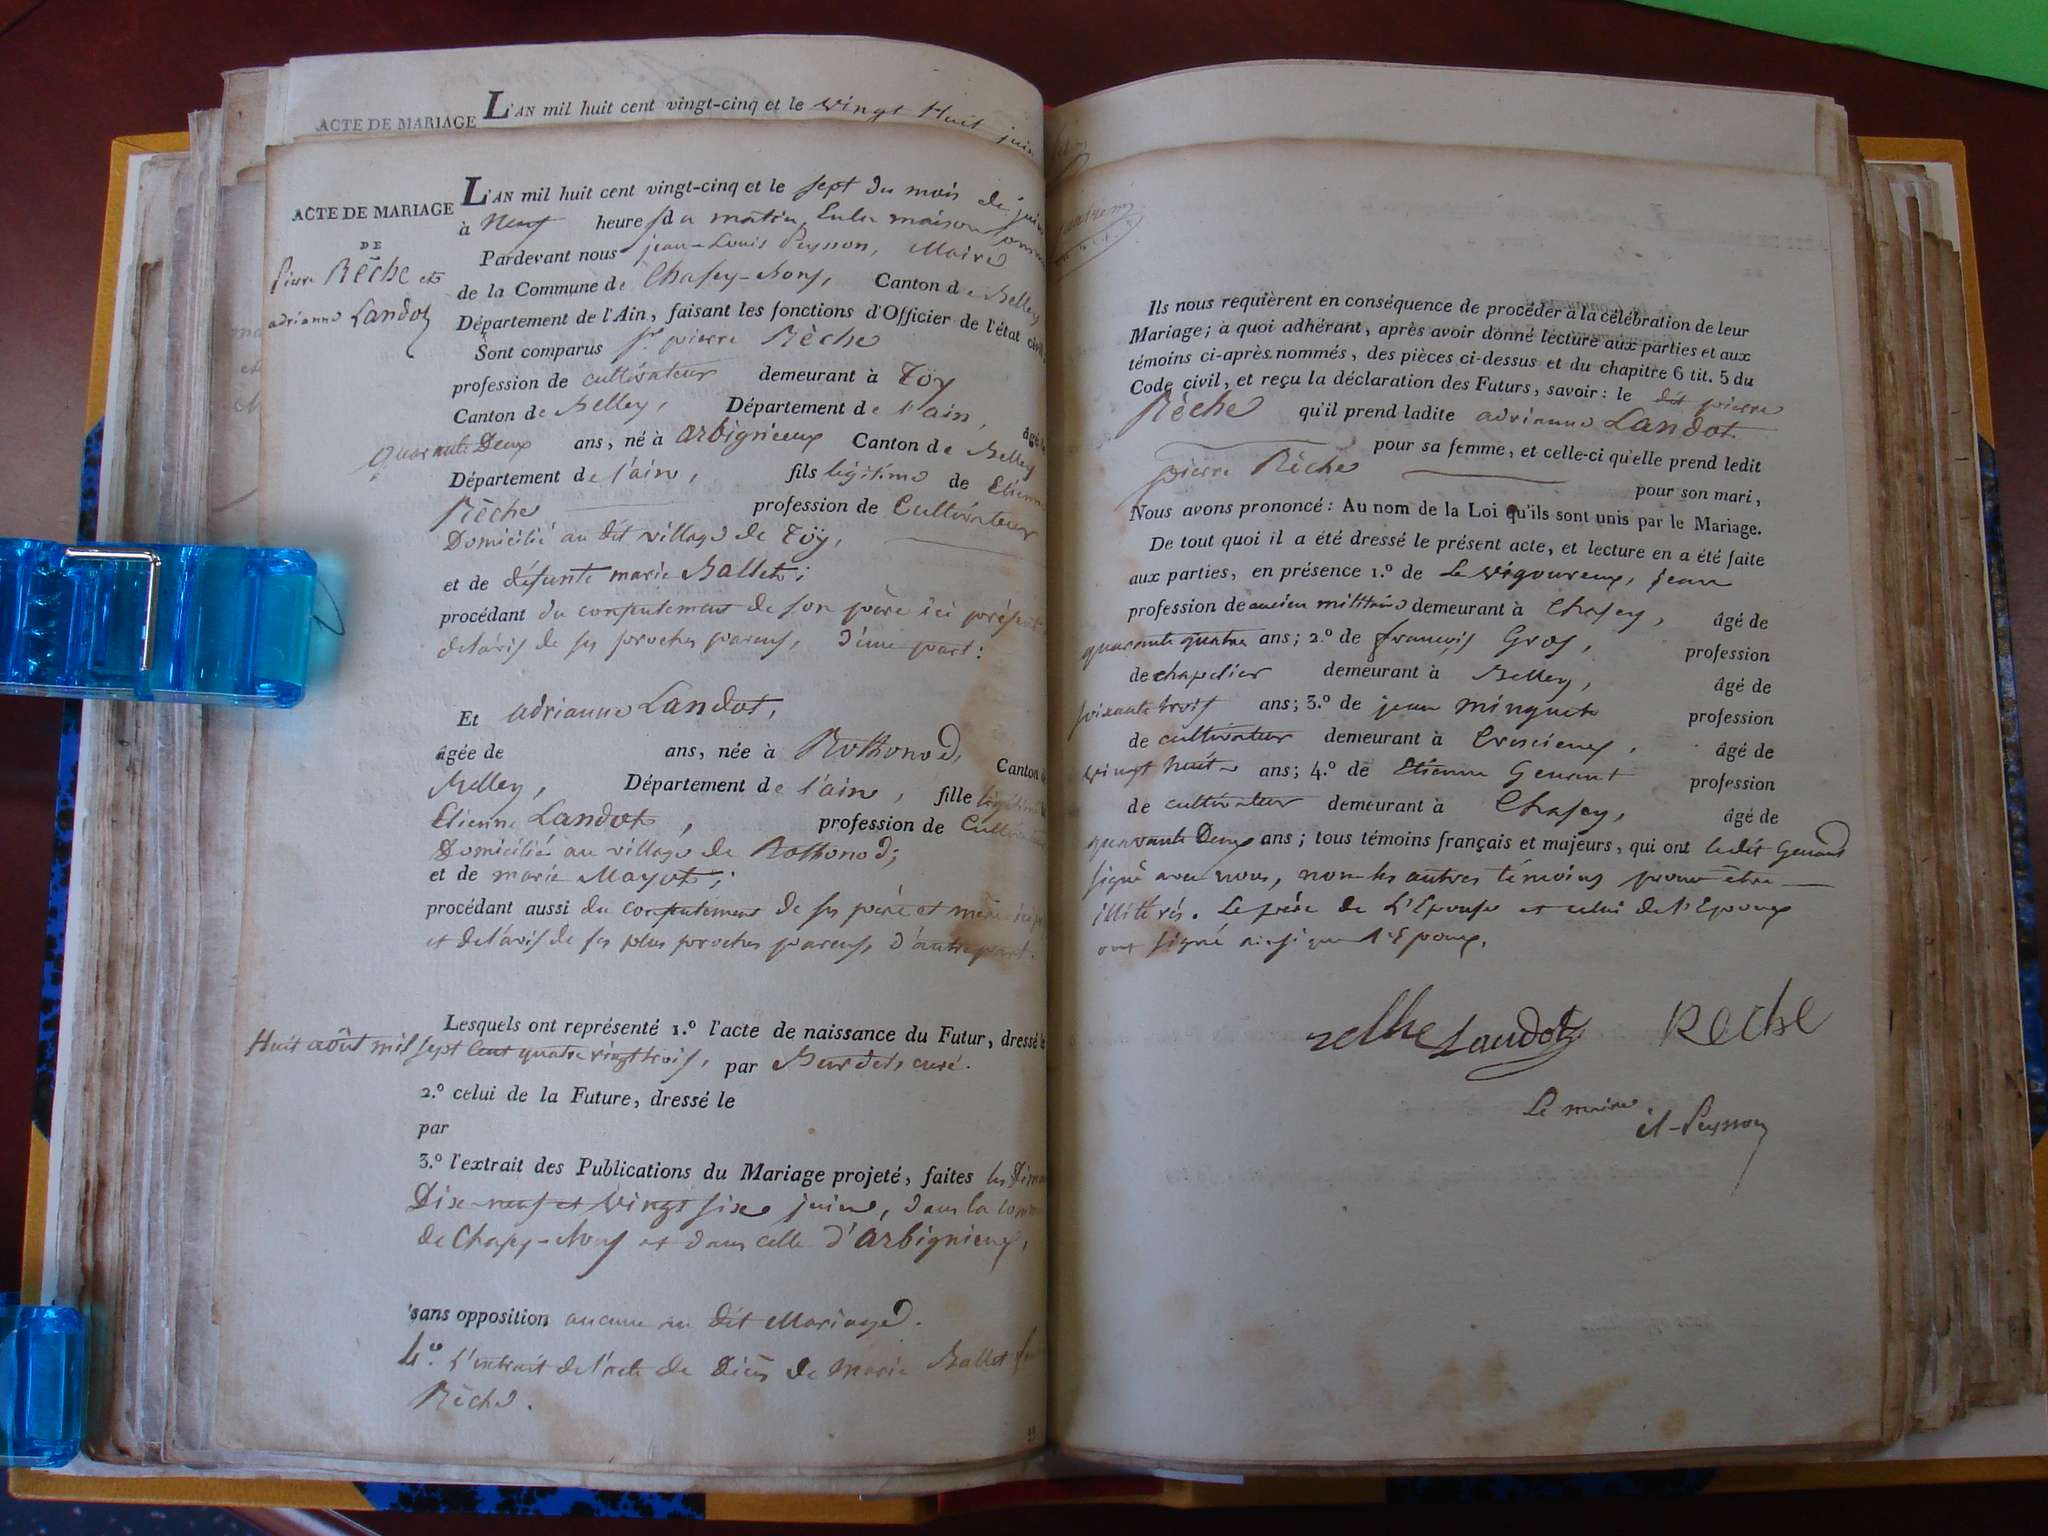 ACTE DE MARIAGE L'AN mil huit cent vingt-cinq et le vingt Huit juin
ACTE DE MARIAGE
DE
Pierre Rèche et
adrianne Landot
L'AN mil huit cent vingt-cinq et le sept du mois de juin
à Neuf heures du matin, En la maison
Pardevant nous jean-Louis Peysson, Maire
de la Commune de Chasey-Bons, Canton de Belley
Département de l'Ain, faisant les fonctions d'Officier de l'état civil,
Sont comparus Sr pierre Rèche
profession de cultivateur demeurant à Toÿ
Canton de Belley, Département de l'ain, âgé de
quarante Deux ans, né à Arbignieux Canton de Belley
Département de l'ain, fils légitime de Etienne
Rèche profession de Cultivateur
Domicilié au dit village de Toÿ,
et de défunte marie Ballet;
procédant du consentement de son père ici présent
de l'avis de ses proches parens, d'une part:
Et adrianne Landot,
âgée de ans, née à Rothonod, Canton de
Belley, Département de l'ain, fille légitime
Etienne Landot, profession de Cultivateur
Domicilié au village de Rothonod;
et de marie Mayot;
procédant aussi du consentement de ses père et mère
et de l'avis de ses plus proches parens, d'autre part.
Lesquels ont représenté 1.º l'acte de naissance du Futur, dressé le
Huit août mil sept cent quatre vingt trois, par Burdet curé.
2.º celui de la Future, dressé le
par
3.º l'extrait des Publications du Mariage projeté, faites les
Dix-neuf et vingt six juin, dans la
de Chasey-Bons et dans celle d'Arbignieux,
sans opposition aucune au dit Mariage.
4.º L'extrait de l'acte de Décès de marie Ballet
Rèche.
Ils nous requièrent en conséquence de procéder à la célébration de leur
Mariage; à quoi adhérant, après avoir donné lecture aux parties et aux
témoins ci-après nommés, des pièces ci-dessus et du chapitre 6 tit. 5 du
Code civil, et reçu la déclaration des Futurs, savoir: le dit pierre
Rèche qu'il prend ladite adrianne Landot
pour sa femme, et celle-ci qu'elle prend ledit
pierre Rèche pour son mari,
Nous avons prononcé: Au nom de la Loi qu'ils sont unis par le Mariage.
De tout quoi il a été dressé le présent acte, et lecture en a été faite
aux parties, en présence 1.º de Le vigoureux, jean
profession de ancien militaire demeurant à Chasey, âgé de
quarante quatre ans; 2.º de françois Gros, profession
de chapelier demeurant à Belley, âgé de
soixante trois ans; 3.º de jean minguet profession
de cultivateur demeurant à Cressieux, âgé de
vingt huit ans; 4.º de Etienne Genant profession
de cultivateur demeurant à Chasey, âgé de
quarante Deux ans; tous témoins français et majeurs, qui ont ledit Genant
signé avec nous, non les autres témoins pour être
illitérés. Le père de l'Epouse et celui de l'Epoux
ont signé ainsi que l'Epoux.
Landot
Reche
Le maire
Peysson